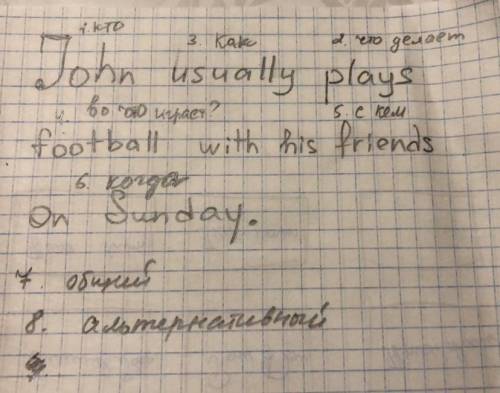 1. кто 3. как 2. что делает
John usually plays
4. во что играет? 5. с кем
football with his friends
6. когда
on Sunday.
7. общий
8. альтернативный